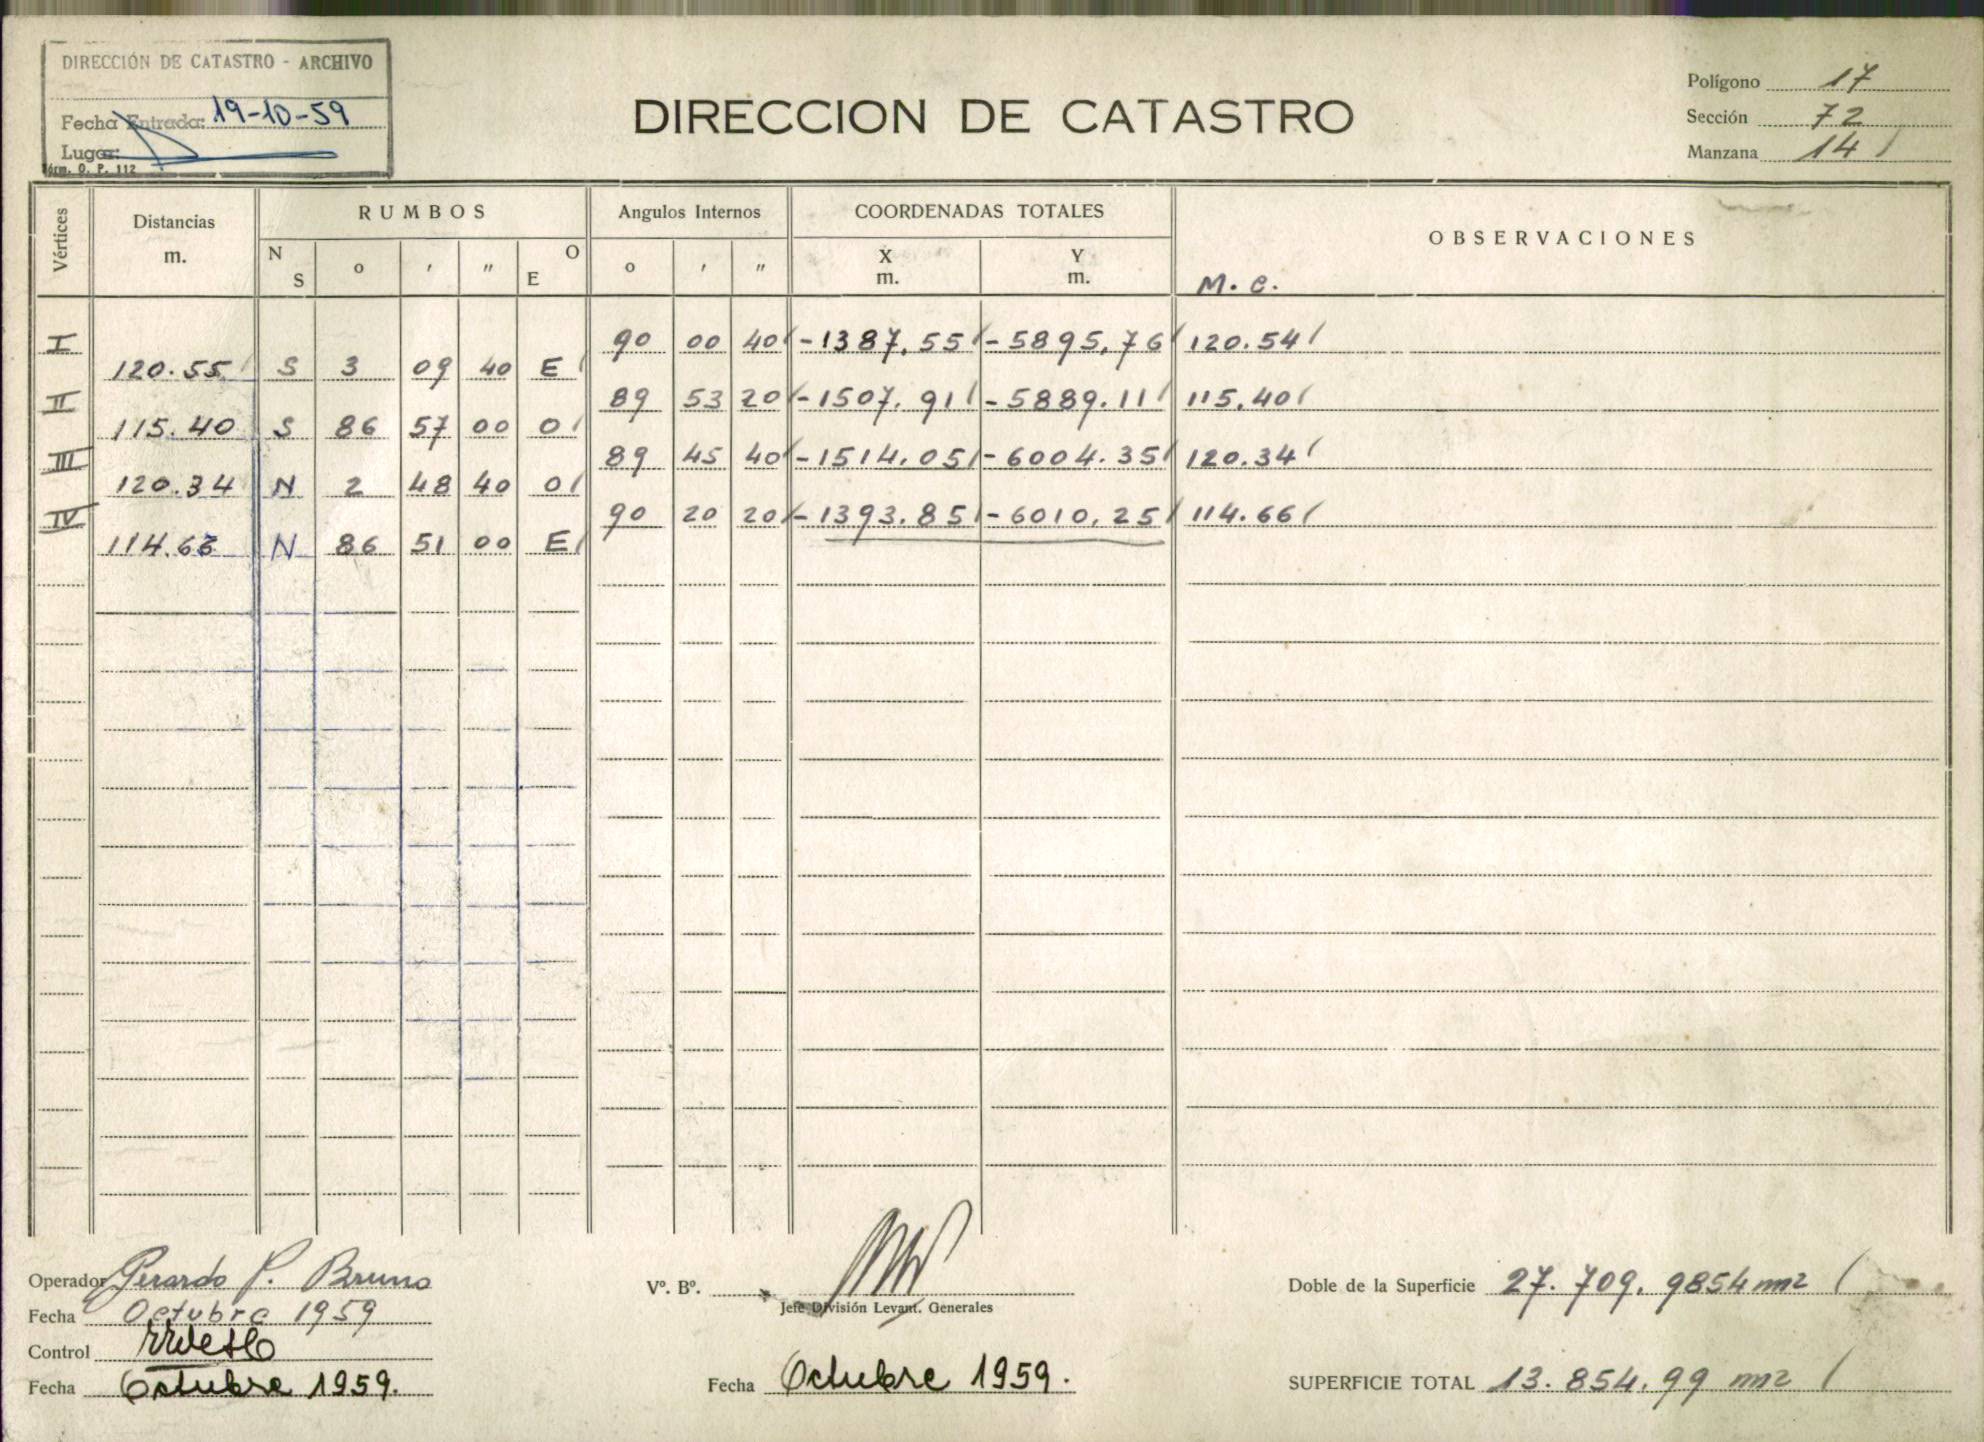 DIRECCIÓN DE CATASTRO - ARCHIVO
Fecha Entrada: 19-10-59
Lugar:
Fórm. O. P. 112
DIRECCION DE CATASTRO
Polígono 17
Sección 72
Manzana 14
Vértices Distancias m. RUMBOS Angulos Internos COORDENADAS TOTALES OBSERVACIONES
N S o ' " O E o ' " X m. Y m. M. C.
I 90 00 40 -1387.55 -5895.76 120.54
120.55 S 3 09 40 E
II 89 53 20 -1507.91 -5889.11 115.40
115.40 S 86 57 00 O
III 89 45 40 -1514.05 -6004.35 120.34
120.34 N 2 48 40 O
IV 90 20 20 -1393.85 -6010.25 114.66
114.66 N 86 51 00 E
Operador Gerardo P. Bruno
Fecha Octubre 1959
Control
Fecha Octubre 1959.
Vº. Bº.
Jefe División Levant. Generales
Fecha Octubre 1959.
Doble de la Superficie 27.709.9854 m2
SUPERFICIE TOTAL 13.854.99 m2